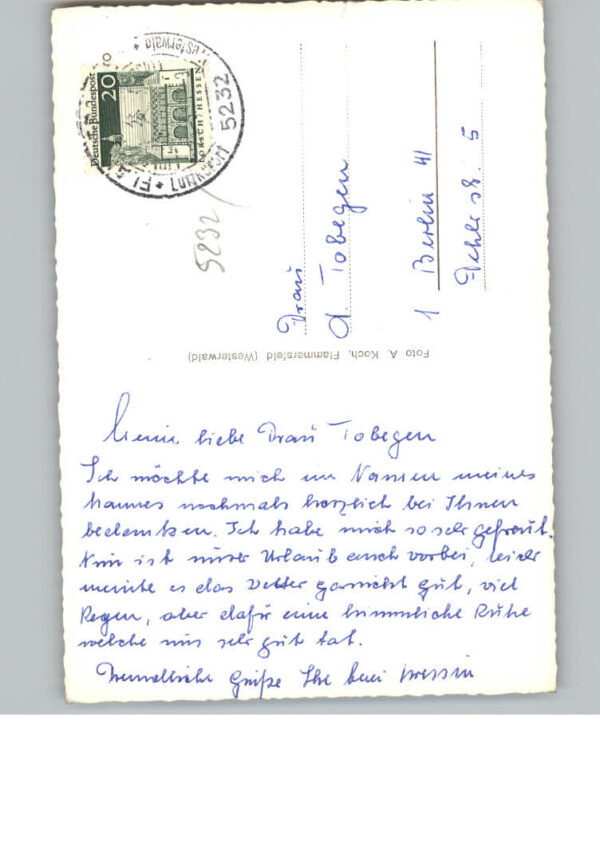 Meine liebe Frau Tobegen
Ich möchte mich im Namen meines
Mannes nochmals herzlich bei Ihnen
bedanken. Ich habe mich so sehr gefreut.
Nun ist unser Urlaub auch vorbei, leider
meinte es das Wetter garnicht gut, viel
Regen, aber dafür eine himmliche Ruhe
welche uns sehr gut tat.
Freundliche Grüße Ihre
Frau
d. Tobegen
1 Berlin 41
5
5232
Foto A. Koch, Flammersfeld (Westerwald)
Deutsche Bundespost
20
LORSCH/HESSEN
5232